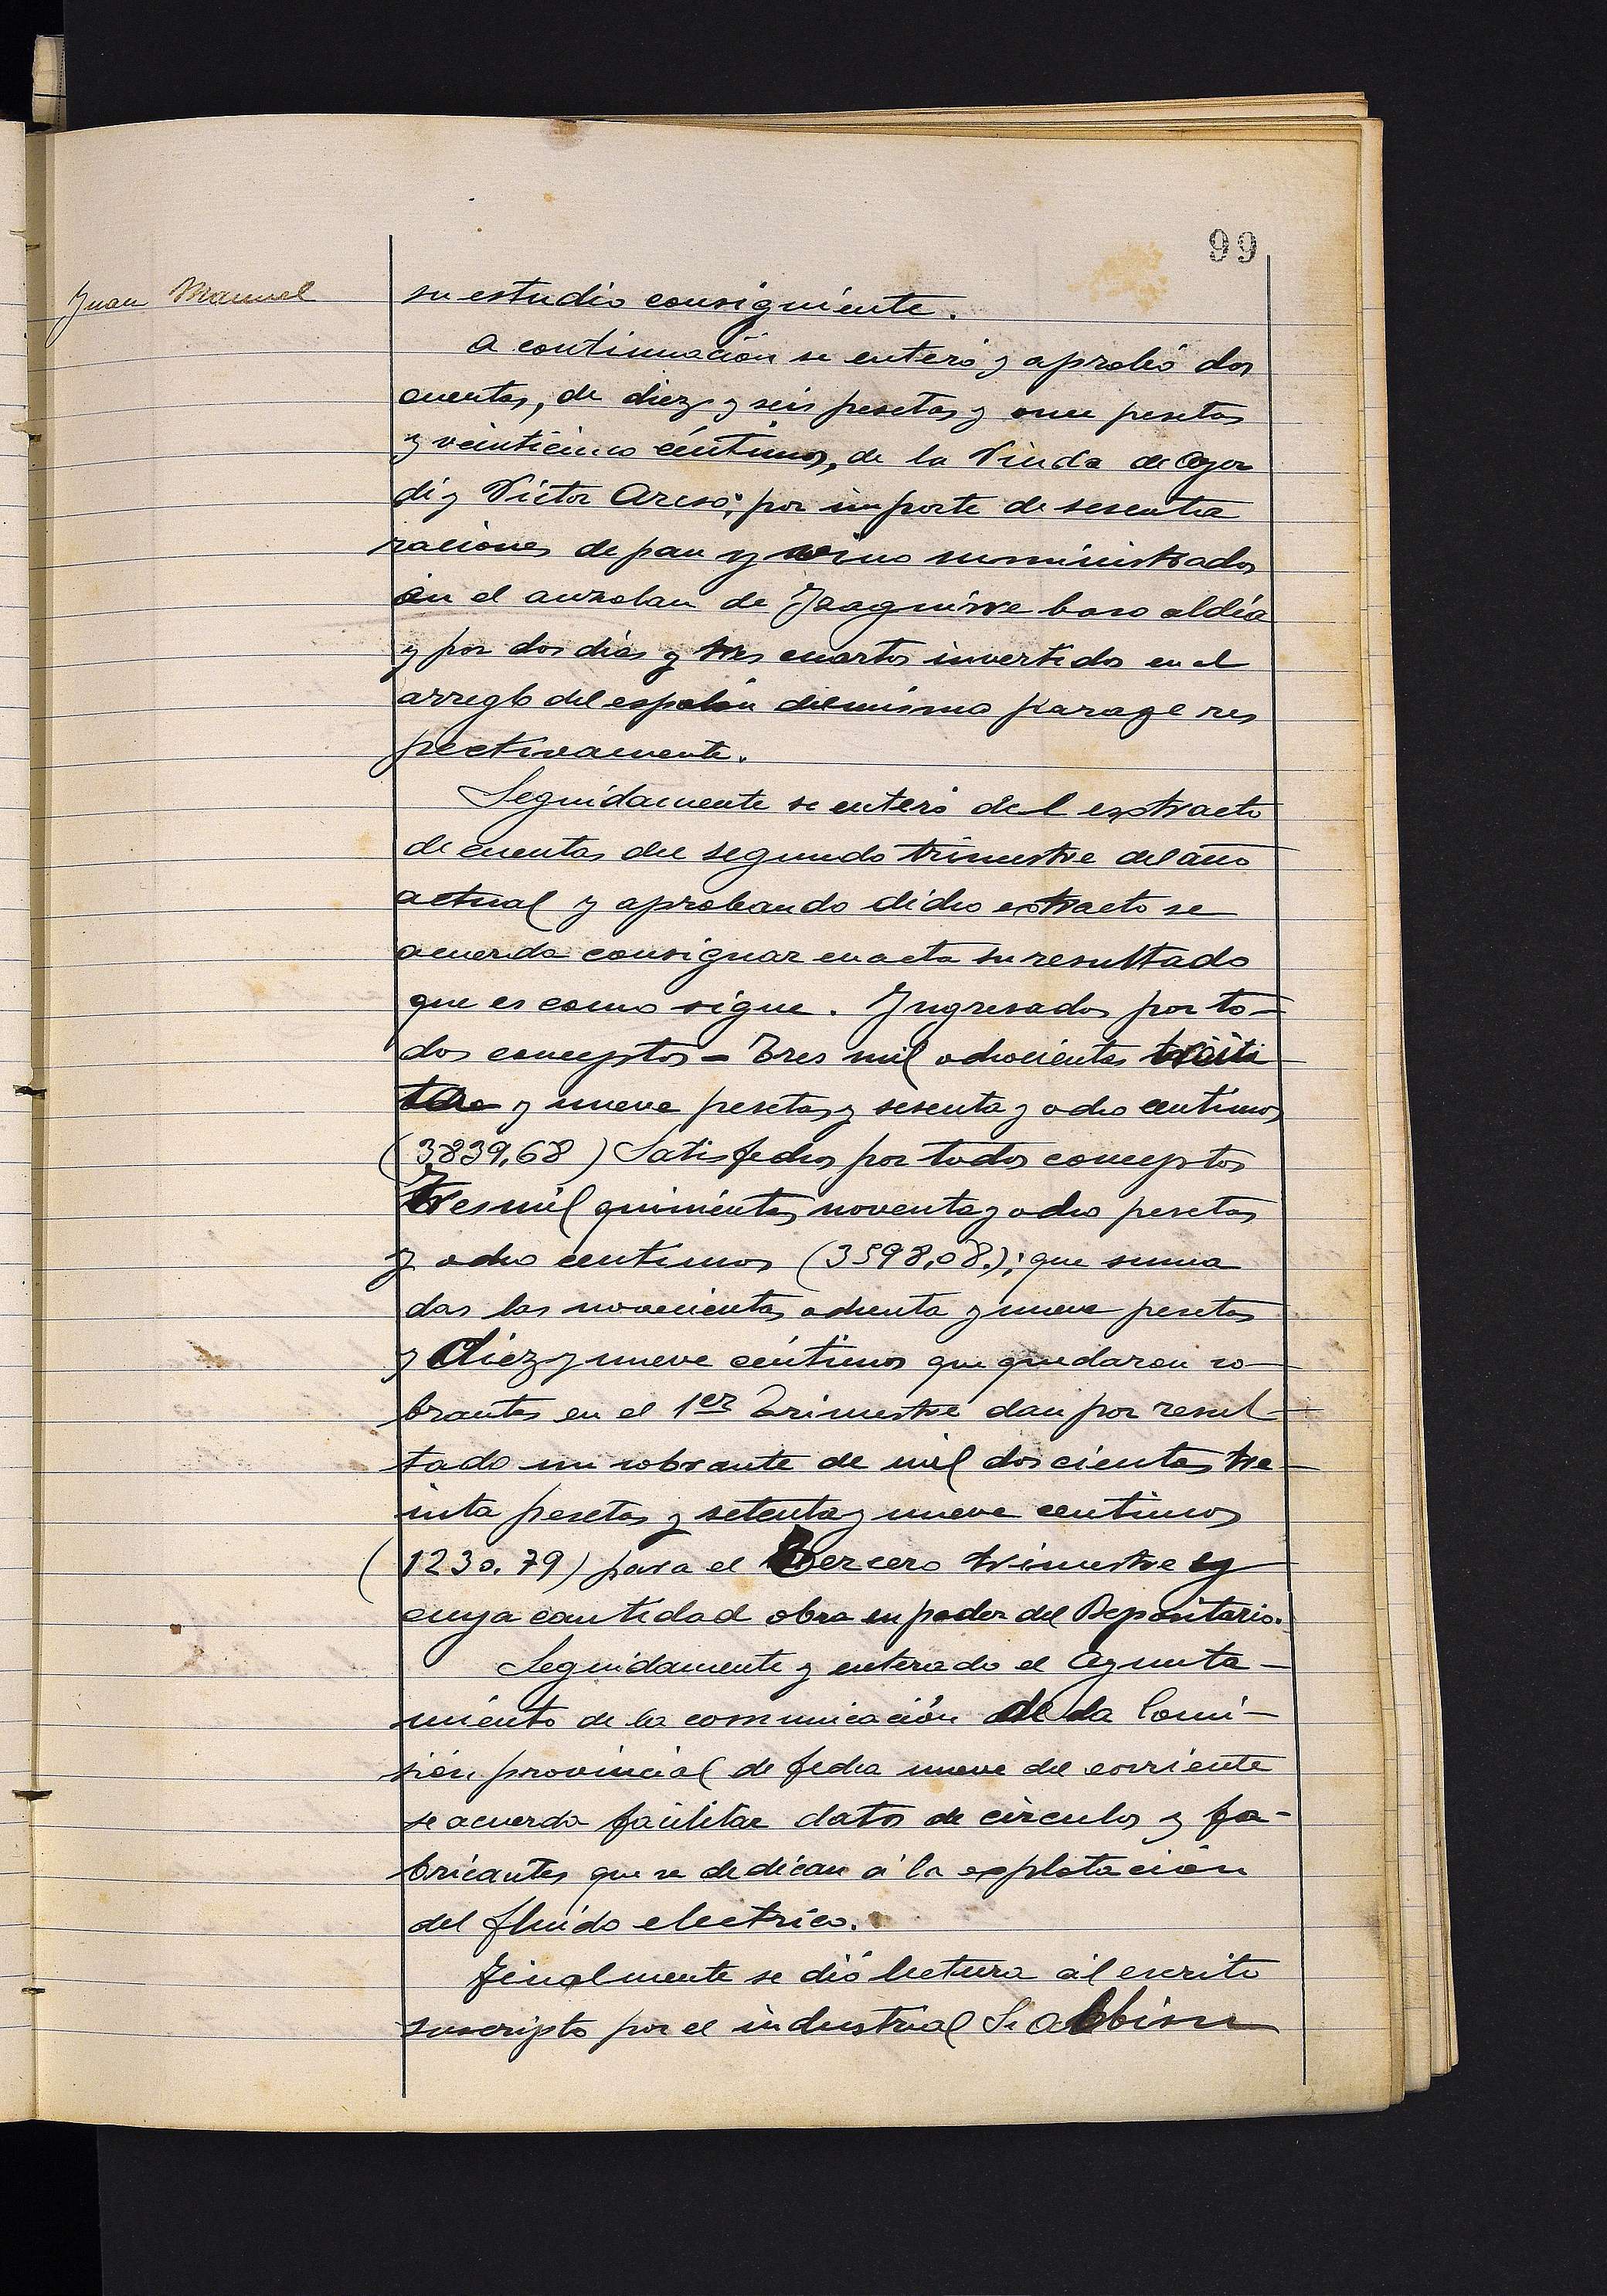 99
Juan Manuel
su estudio consiguiente.
A continuación se enteró y aprobó dos
cuentas, de diez y seis pesetas y once pesetas
y veinticinco céntimos, de la Viuda de Ayer
di y Victor Areso; por importe de sesenta
raciones de pan y vino suministrados
en el auzolan de Izaguirre baso aldia
y por dos dias y tres cuartos invertidos en el
arreglo del espolón del mismo parage res
pectivamente.
Seguidamente se enteró del extracto
de cuentas del segundo trimestre del año
actual y aprobando dicho extracto se
acuerda consignar en acta su resultado
que es como sigue. Ingresados por to-
dos conceptos - Tres mil ochocientas trein
ta y nueve pesetas y sesenta y ocho centimos
(3839,68) Satisfechos por todos conceptos
Tres mil quinientas noventa y ocho pesetas
y ocho centimos (3598,08.); que suma
das las novecientas ochenta y nueve pesetas
y diez y nueve céntimos que quedaron so-
brantes en el 1er Trimestre dan por resul-
tado un sobrante de mil doscientas tre-
inta pesetas y setenta y nueve centimos
(1230.79) para el Tercero trimestre y
cuya cantidad obra en poder del Depositario.
Seguidamente y enterado el Ayunta-
miento de la comunicación de la Comi-
sión provincial de fecha nueve del corriente
se acuerda facilitar datos de circulos y fa-
bricantes que se dedican á la explotación
del fluido electrico.
Finalmente se dió lectura al escrito
suscripto por el industrial Sr Albisu